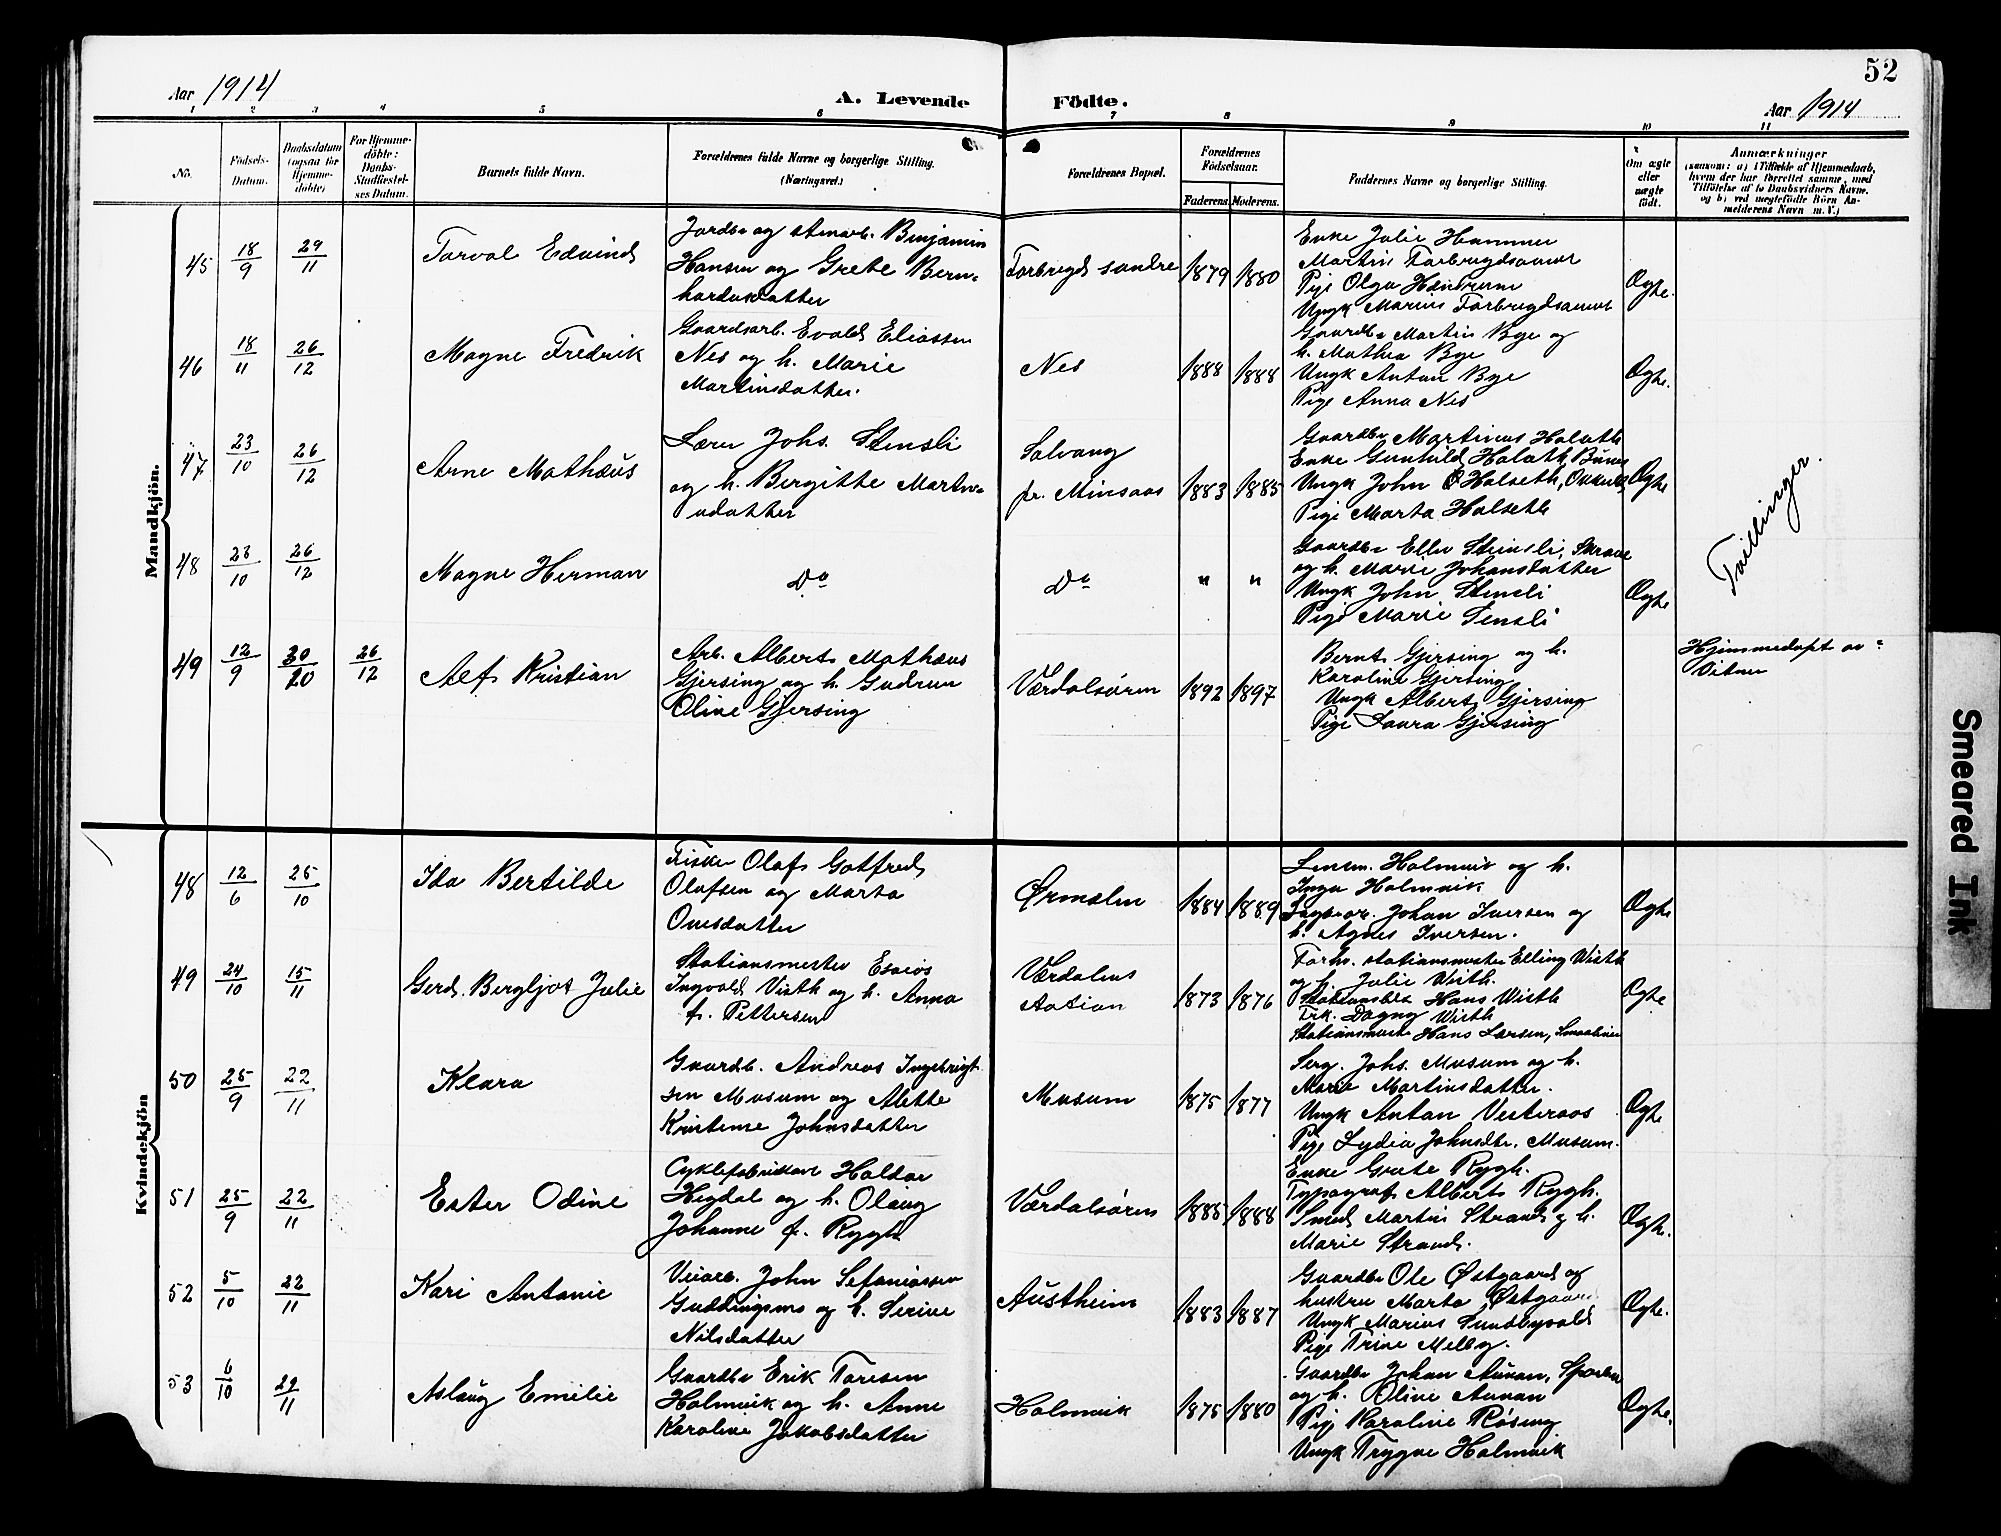 52
Aar 1914
A. Levende
Födte.
Aar 1914
1 2 3 4 5 6 7 8 9 10 11
No.
Födsels-Datum.
Daabsdatum (ogsaa for Hjemmedöbte)
For Hjemmedöbte: Daabs-Stadfæstelses Datum.
Barnets fulde Navn.
Forældrenes fulde Navne og borgerlige Stilling.
(Næringsvei.)
Forældrenes Bopæl.
Forældrenes Födselsaar.
Faderens. Moderens.
Faddernes Navne og borgerlige Stilling.
Om ægte eller uægte födt.
Anmærkninger
(saasom: a) i Tilfælde af Hjemmedaab,
hvem der har forrettet samme, med
Tilföielse af to Daabsvidners Navne.
og b) ved uægtefödte Börn An-
melderens Navn m. V.)
Mandkjön.
45 18/9 29/11 Torval Edvind
Jordbr og stenarb. Benjamin
Hansen og Grete Bern-
hardusdatter
Forbregd søndre 1879 1880
Enke Julie Hammer
Martin Forbregdsaunet
Pige Olga
Ungk Marius Forbregdsaunet
Ægte.
46 18/11 26/12 Magne Fredrik
Gaardsarb. Evald Eliassen
Nes og h. Marie
Martinsdatter.
Nes 1888 1888
Gaardbr Martin Bye og
h. Mathea Bye
Ungk Anton Bye
Pige Anna Nes
Ægte.
47 23/10 26/12 Arne Mathæus
Lærer Johs. Stensli
og h. Bergitte Martin-
usdatter
Solvang
pr. Minsaas 1883 1885
Gaardbr Martinus Halseth
Enke Gunhild Halseth,
Ungk John O Halseth,
Pige Marta Halseth
Ægte
48 23/10 26/12 Magne Herman
Do
Do " "
Gaardbr Ellev Stensli,
og h. Marie Johansdatter
Ungk John Stensli
Pige Marie Stensli
Ægte
Tvillinger.
49 12/9 30/10 26/12 Alf Kristian
Arb. Albert Mathæus
Gjersing og h. Gudrun
Oline Gjersing
Værdalsøren 1892 1897
Bernt Gjersing og h.
Karoline Gjersing
Ungk Albert Gjersing
Pige Laura Gjersing
Hjemmedøpt av
Kvindekjön
48 12/6 25/10 Ida Bertilde
Fisker Olaf Gotfred
Olafsen og Marta
Ovesdatter
Ørmelen 1884 1889
Lensm. Holmvik og h.
Inga Holmvik
Johan Iversen og
h. Agnes Iversen.
Ægte
49 24/10 15/11 Gerd Bergljot Julie
Stationsmester Esaias
Ingvald Wisth og h. Anna
f. Pettersen
Værdalens
station 1873 1876
Forh. stationsmester Elling Wisth
og h. Julie Wisth.
Hans Wisth
Frk. Dagny Wisth
Stationsmester Hans Larsen,
Ægte
50 25/9 22/11 Klara
Gaardbr. Andreas Ingebrigt-
sen Musum og Alette
Kristense Johnsdatter
Musum 1875 1877
Serg. Johs. Musum og h.
Marie Martinsdatter.
Ungk Anton Vesteraas
Pige Lydia Johnsdtr. Musum.
Ægte
51 25/9 22/11 Ester Odine
Cyklefabrikkør Haldor
Hegdal og h. Olaug
Johanne f. Rygh
Værdalsøren 1885 1888
Enke Grete Rygh.
Typograf Albert Rygh.
Smed Martin Strand og h.
Marie Strand.
Ægte.
52 5/10 22/11 Kari Antonie
Veiarb. John Sefaniassen
Guddingsmo og h. Serine
Nilsdatter
Austheim 1883 1887
Gaardbr Ole Østgaard og
hustru Marta Østgaard
Ungk Marius Sundbyvald
Pige Trine Melby.
Ægte.
53 6/10 29/11 Aslaug Emilie
Gaardbr Erik Toresen
Holmvik og h. Anne
Karoline Jakobsdatter
Holmvik 1875 1880
Gaardbr Johan Aunan, Sparbu
og h. Oline Aunan
Pige Karoline Røsing
Ungk Trygve Holmvik
Ægte.
Smeared Ink